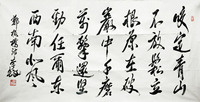 咬定青山
不放鬆立
根原在破
巖中千磨
萬擊還堅
勁任爾東
西南北風
鄭板橋詩